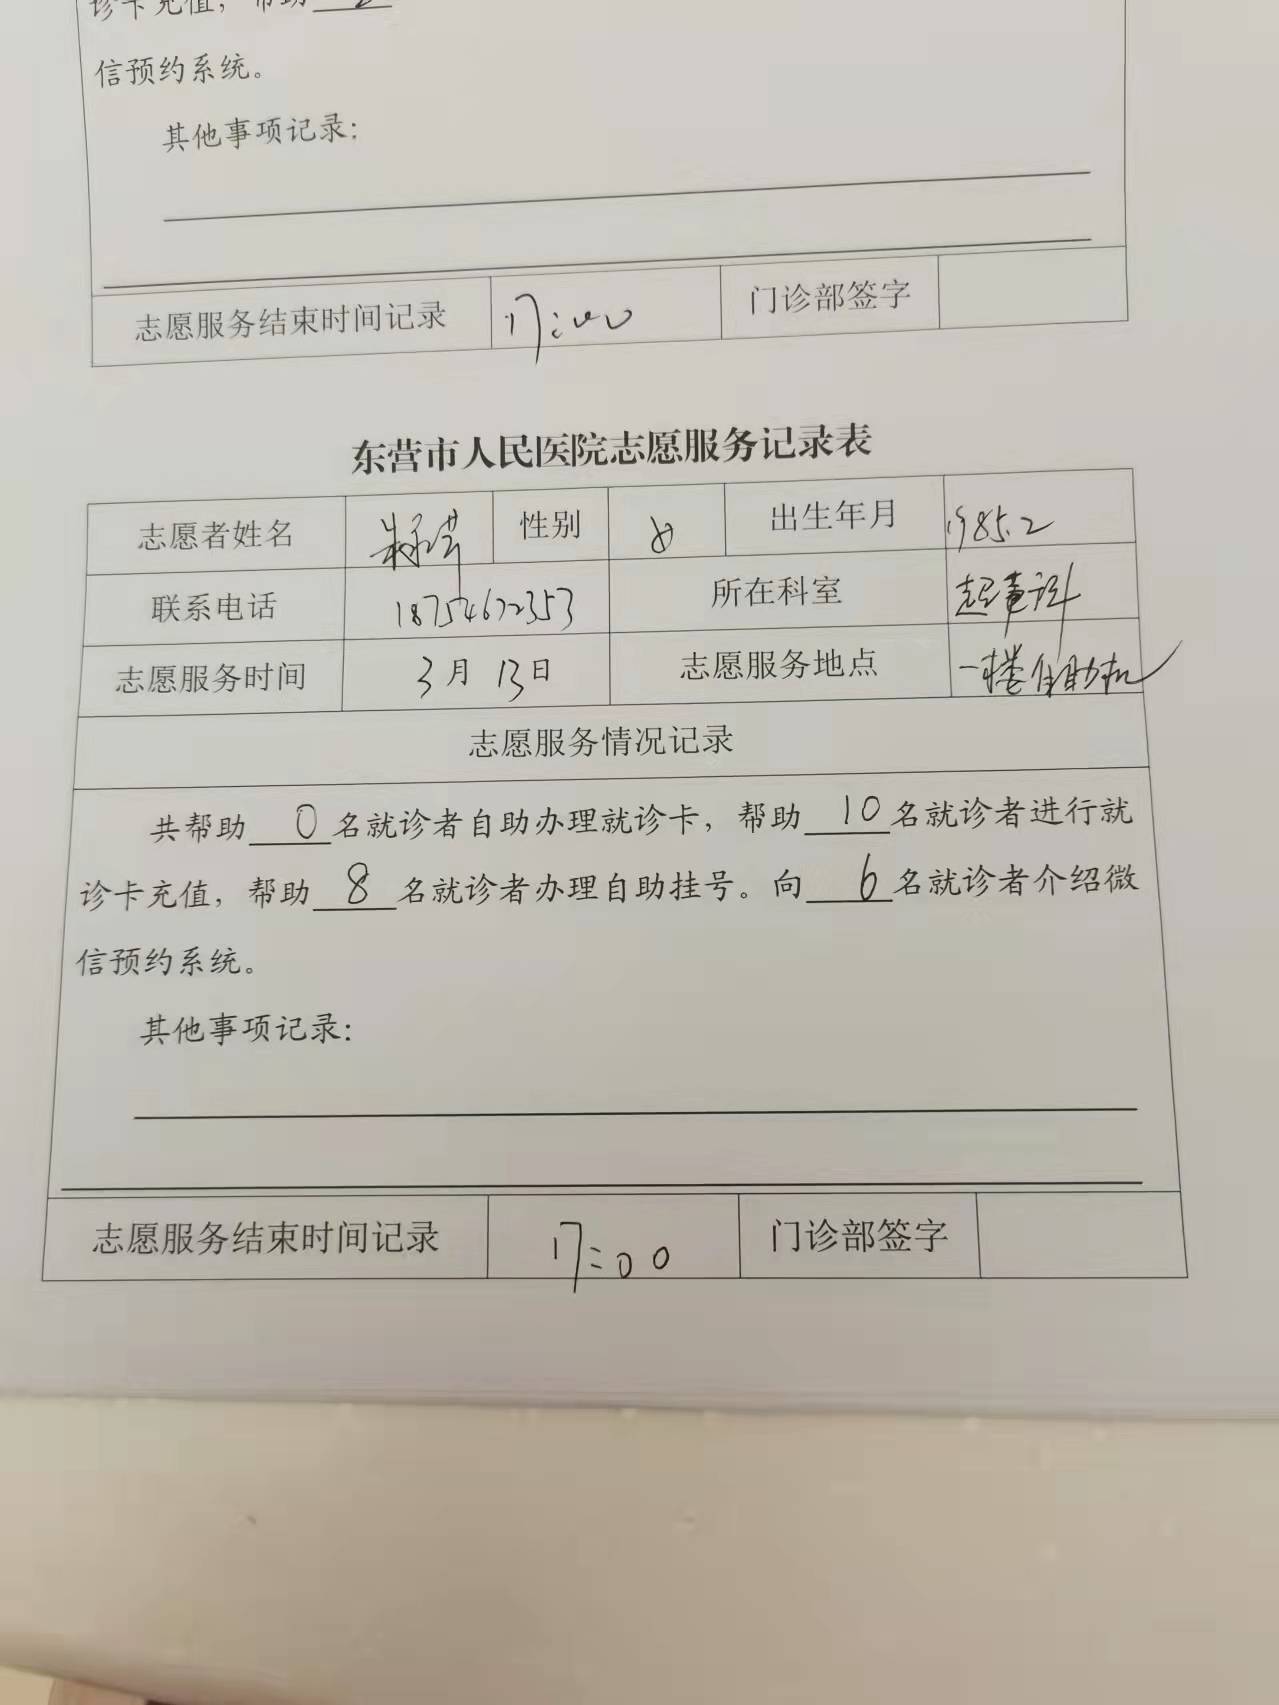 诊卡充值，帮助
信预约系统。
其他事项记录：
志愿服务结束时间记录 17:00 门诊部签字
东营市人民医院志愿服务记录表
志愿者姓名 性别 女 出生年月 1985.2
联系电话 18754672353 所在科室
志愿服务时间 3月13日 志愿服务地点 一楼自助机
志愿服务情况记录
共帮助 0 名就诊者自助办理就诊卡，帮助 10 名就诊者进行就
诊卡充值，帮助 8 名就诊者办理自助挂号。向 6 名就诊者介绍微
信预约系统。
其他事项记录：
志愿服务结束时间记录 17:00 门诊部签字